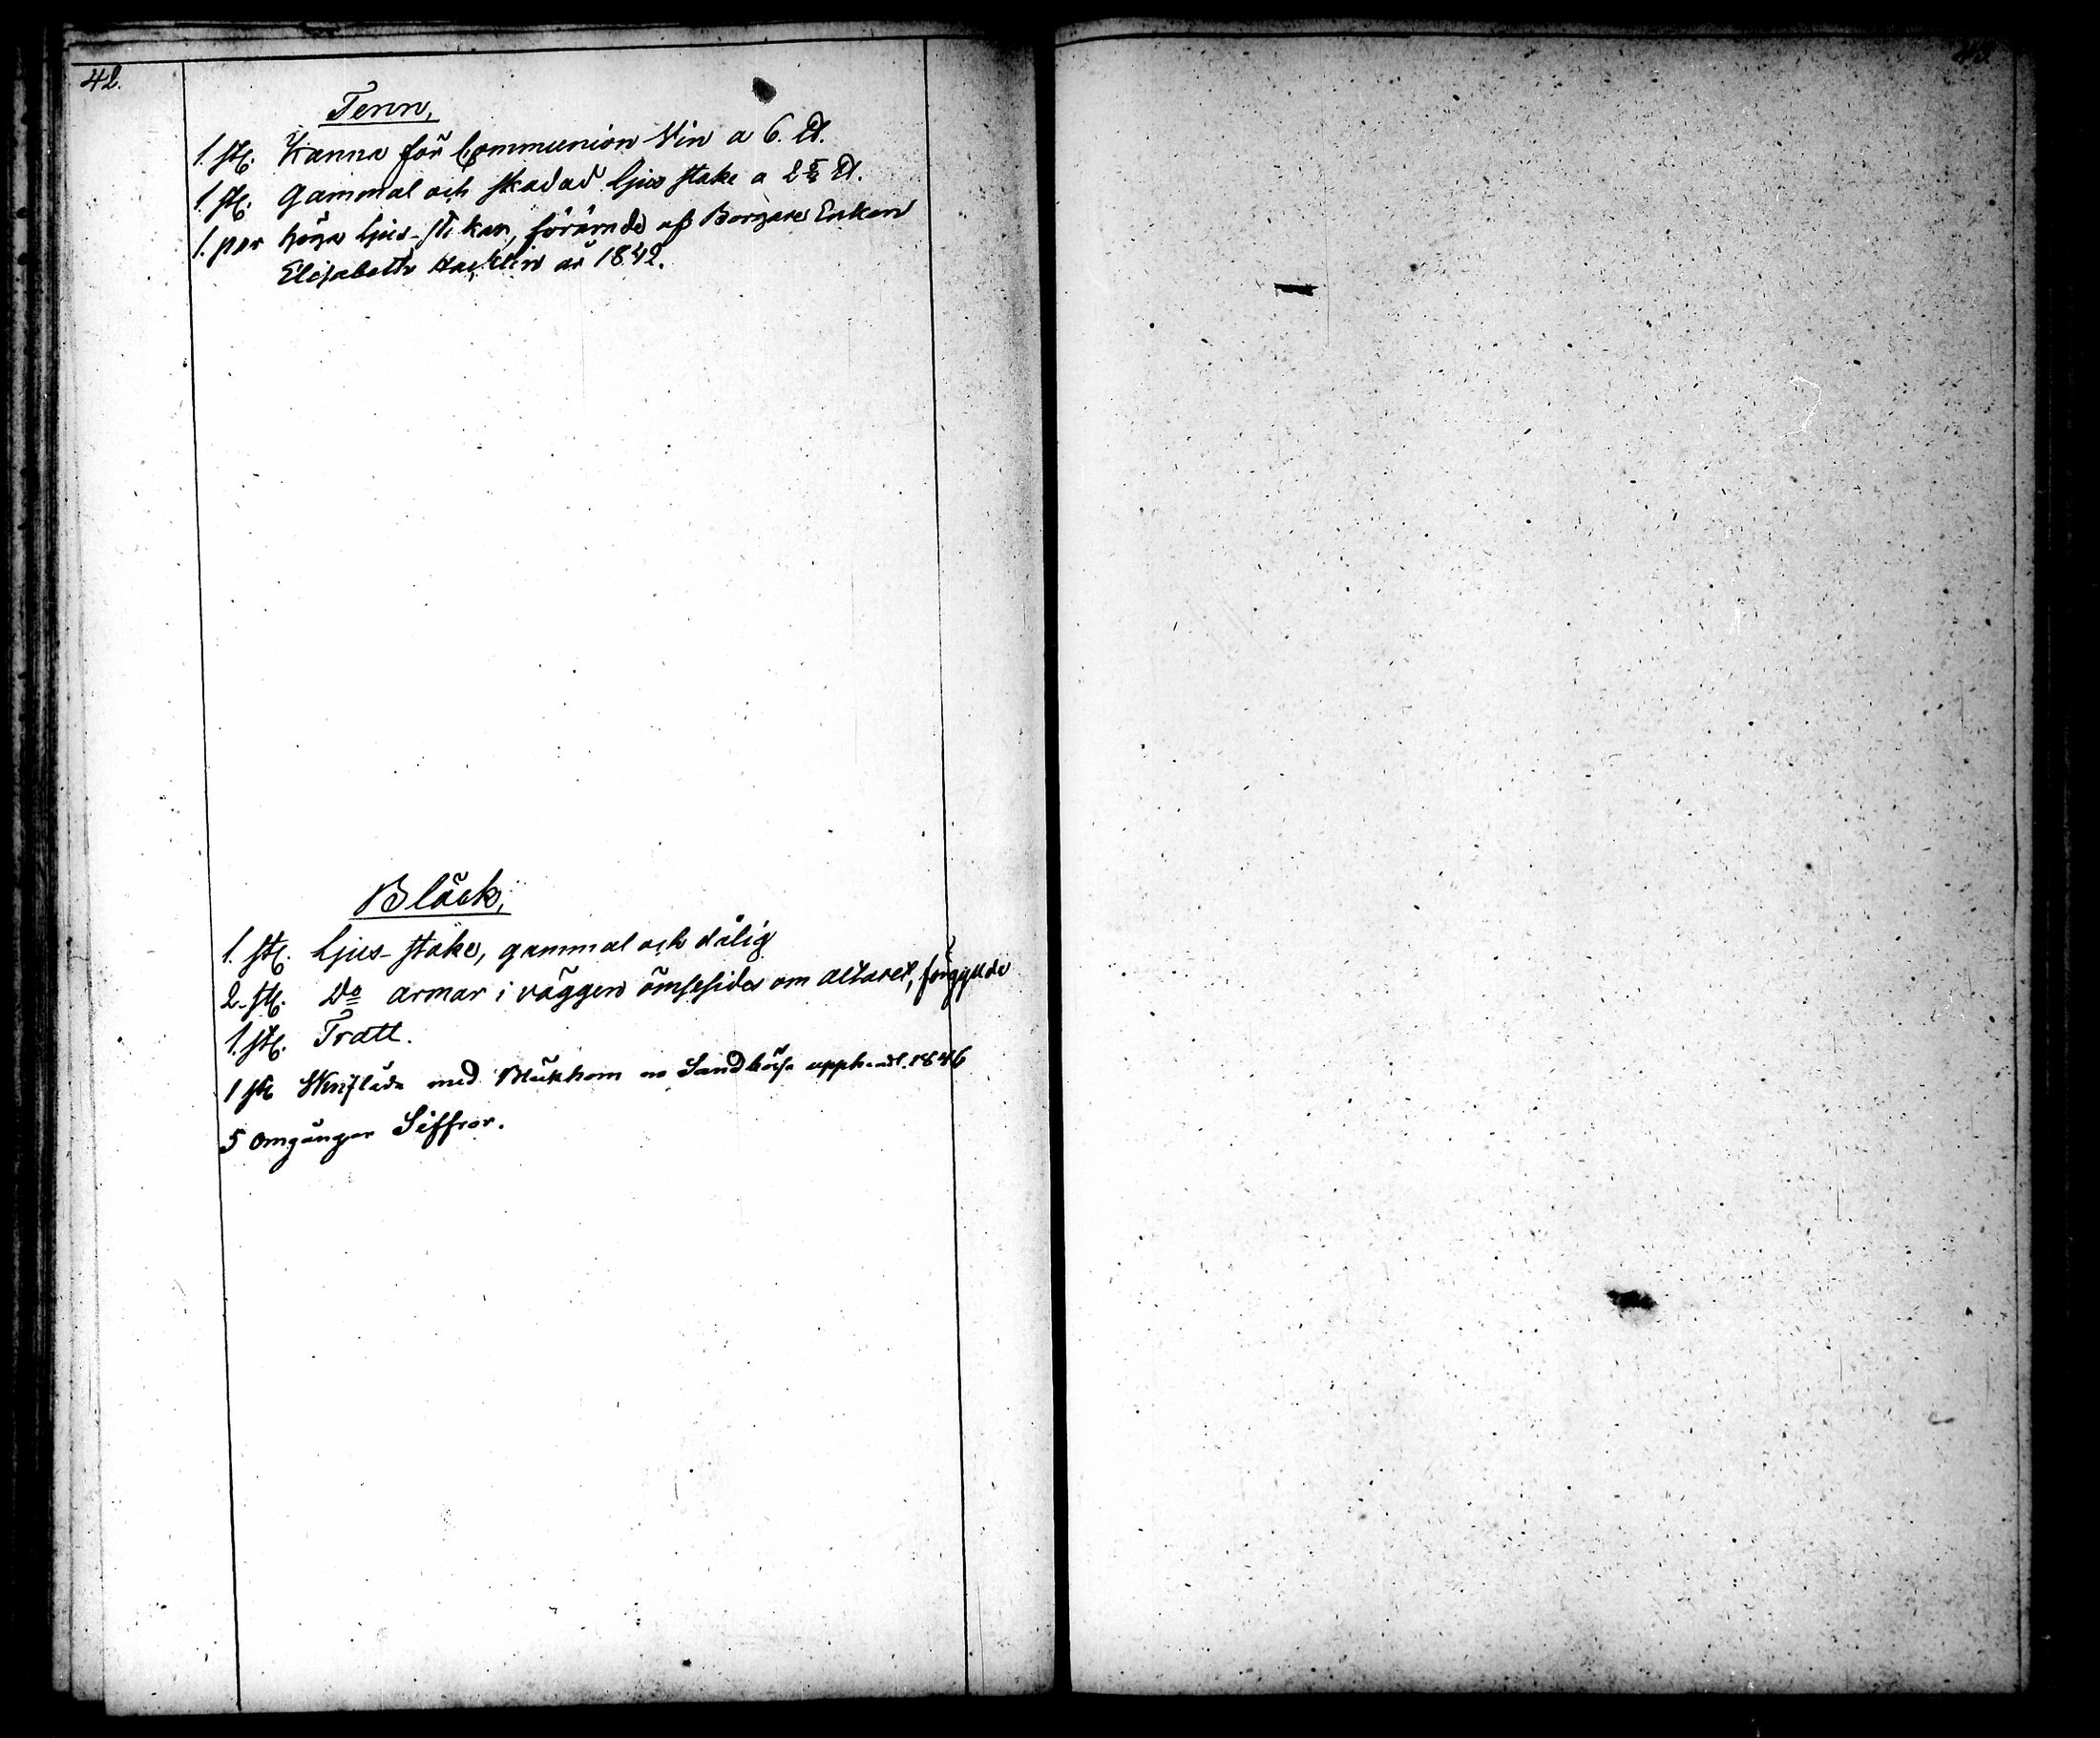 42.
Tenn,
1. st. Kanna för Communion Vin a 6. ℔.
1. st. Gammal och skadad ljus stake a 2 ℔.
1. par höga ljus-stakar, förärade af Borgare Enkan
Elisabeth år 1842.
Bläck,
1. st. Ljus-stake, gammal och dålig
2. st. Do armar i väggen ömsesidor om altaret, förgyllda
1. st. Tratt.
1 st Skriflåda med Bläckhorn o Sandbössa upphandl. 1846
5 omgångar Siffror.
43.